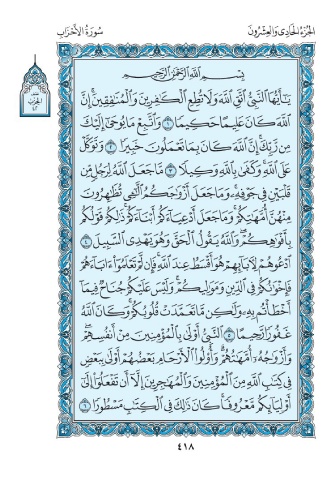 الجزء الحادي والعشرون
سورة الأحزاب
نصف الحزب
بِسْمِ ٱللَّهِ ٱلرَّحْمَٰنِ ٱلرَّحِيمِ
يَٰٓأَيُّهَا ٱلنَّبِيُّ ٱتَّقِ ٱللَّهَ وَلَا تُطِعِ ٱلْكَٰفِرِينَ وَٱلْمُنَٰفِقِينَۗ إِنَّ
ٱللَّهَ كَانَ عَلِيمًا حَكِيمٗا ١ وَٱتَّبِعْ مَا يُوحَىٰٓ إِلَيْكَ
مِن رَّبِّكَۚ إِنَّ ٱللَّهَ كَانَ بِمَا تَعْمَلُونَ خَبِيرٗا ٢ وَتَوَكَّلْ
عَلَى ٱللَّهِۚ وَكَفَىٰ بِٱللَّهِ وَكِيلٗا ٣ مَّا جَعَلَ ٱللَّهُ لِرَجُلٖ مِّن
قَلْبَيْنِ فِي جَوْفِهِۦۚ وَمَا جَعَلَ أَزْوَٰجَكُمُ ٱلَّٰٓـِٔي تُظَٰهِرُونَ
مِنْهُنَّ أُمَّهَٰتِكُمْۚ وَمَا جَعَلَ أَدْعِيَآءَكُمْ أَبْنَآءَكُمْۚ ذَٰلِكُمْ قَوْلُكُم
بِأَفْوَٰهِكُمْۖ وَٱللَّهُ يَقُولُ ٱلْحَقَّ وَهُوَ يَهْدِي ٱلسَّبِيلَ ٤
ٱدْعُوهُمْ لِأٓبَآئِهِمْ هُوَ أَقْسَطُ عِندَ ٱللَّهِۚ فَإِن لَّمْ تَعْلَمُوٓاْ ءَابَآءَهُمْ
فَإِخْوَٰنُكُمْ فِي ٱلدِّينِ وَمَوَٰلِيكُمْۚ وَلَيْسَ عَلَيْكُمْ جُنَاحٞ فِيمَآ
أَخْطَأْتُم بِهِۦ وَلَٰكِن مَّا تَعَمَّدَتْ قُلُوبُكُمْۚ وَكَانَ ٱللَّهُ
غَفُورٗا رَّحِيمًا ٥ ٱلنَّبِيُّ أَوْلَىٰ بِٱلْمُؤْمِنِينَ مِنْ أَنفُسِهِمْۖ
وَأَزْوَٰجُهُۥٓ أُمَّهَٰتُهُمْۗ وَأُوْلُواْ ٱلْأَرْحَامِ بَعْضُهُمْ أَوْلَىٰ بِبَعْضٖ
فِي كِتَٰبِ ٱللَّهِ مِنَ ٱلْمُؤْمِنِينَ وَٱلْمُهَٰجِرِينَ إِلَّآ أَن تَفْعَلُوٓاْ إِلَىٰٓ
أَوْلِيَآئِكُم مَّعْرُوفٗاۚ كَانَ ذَٰلِكَ فِي ٱلْكِتَٰبِ مَسْطُورٗا ٦
٤١٨